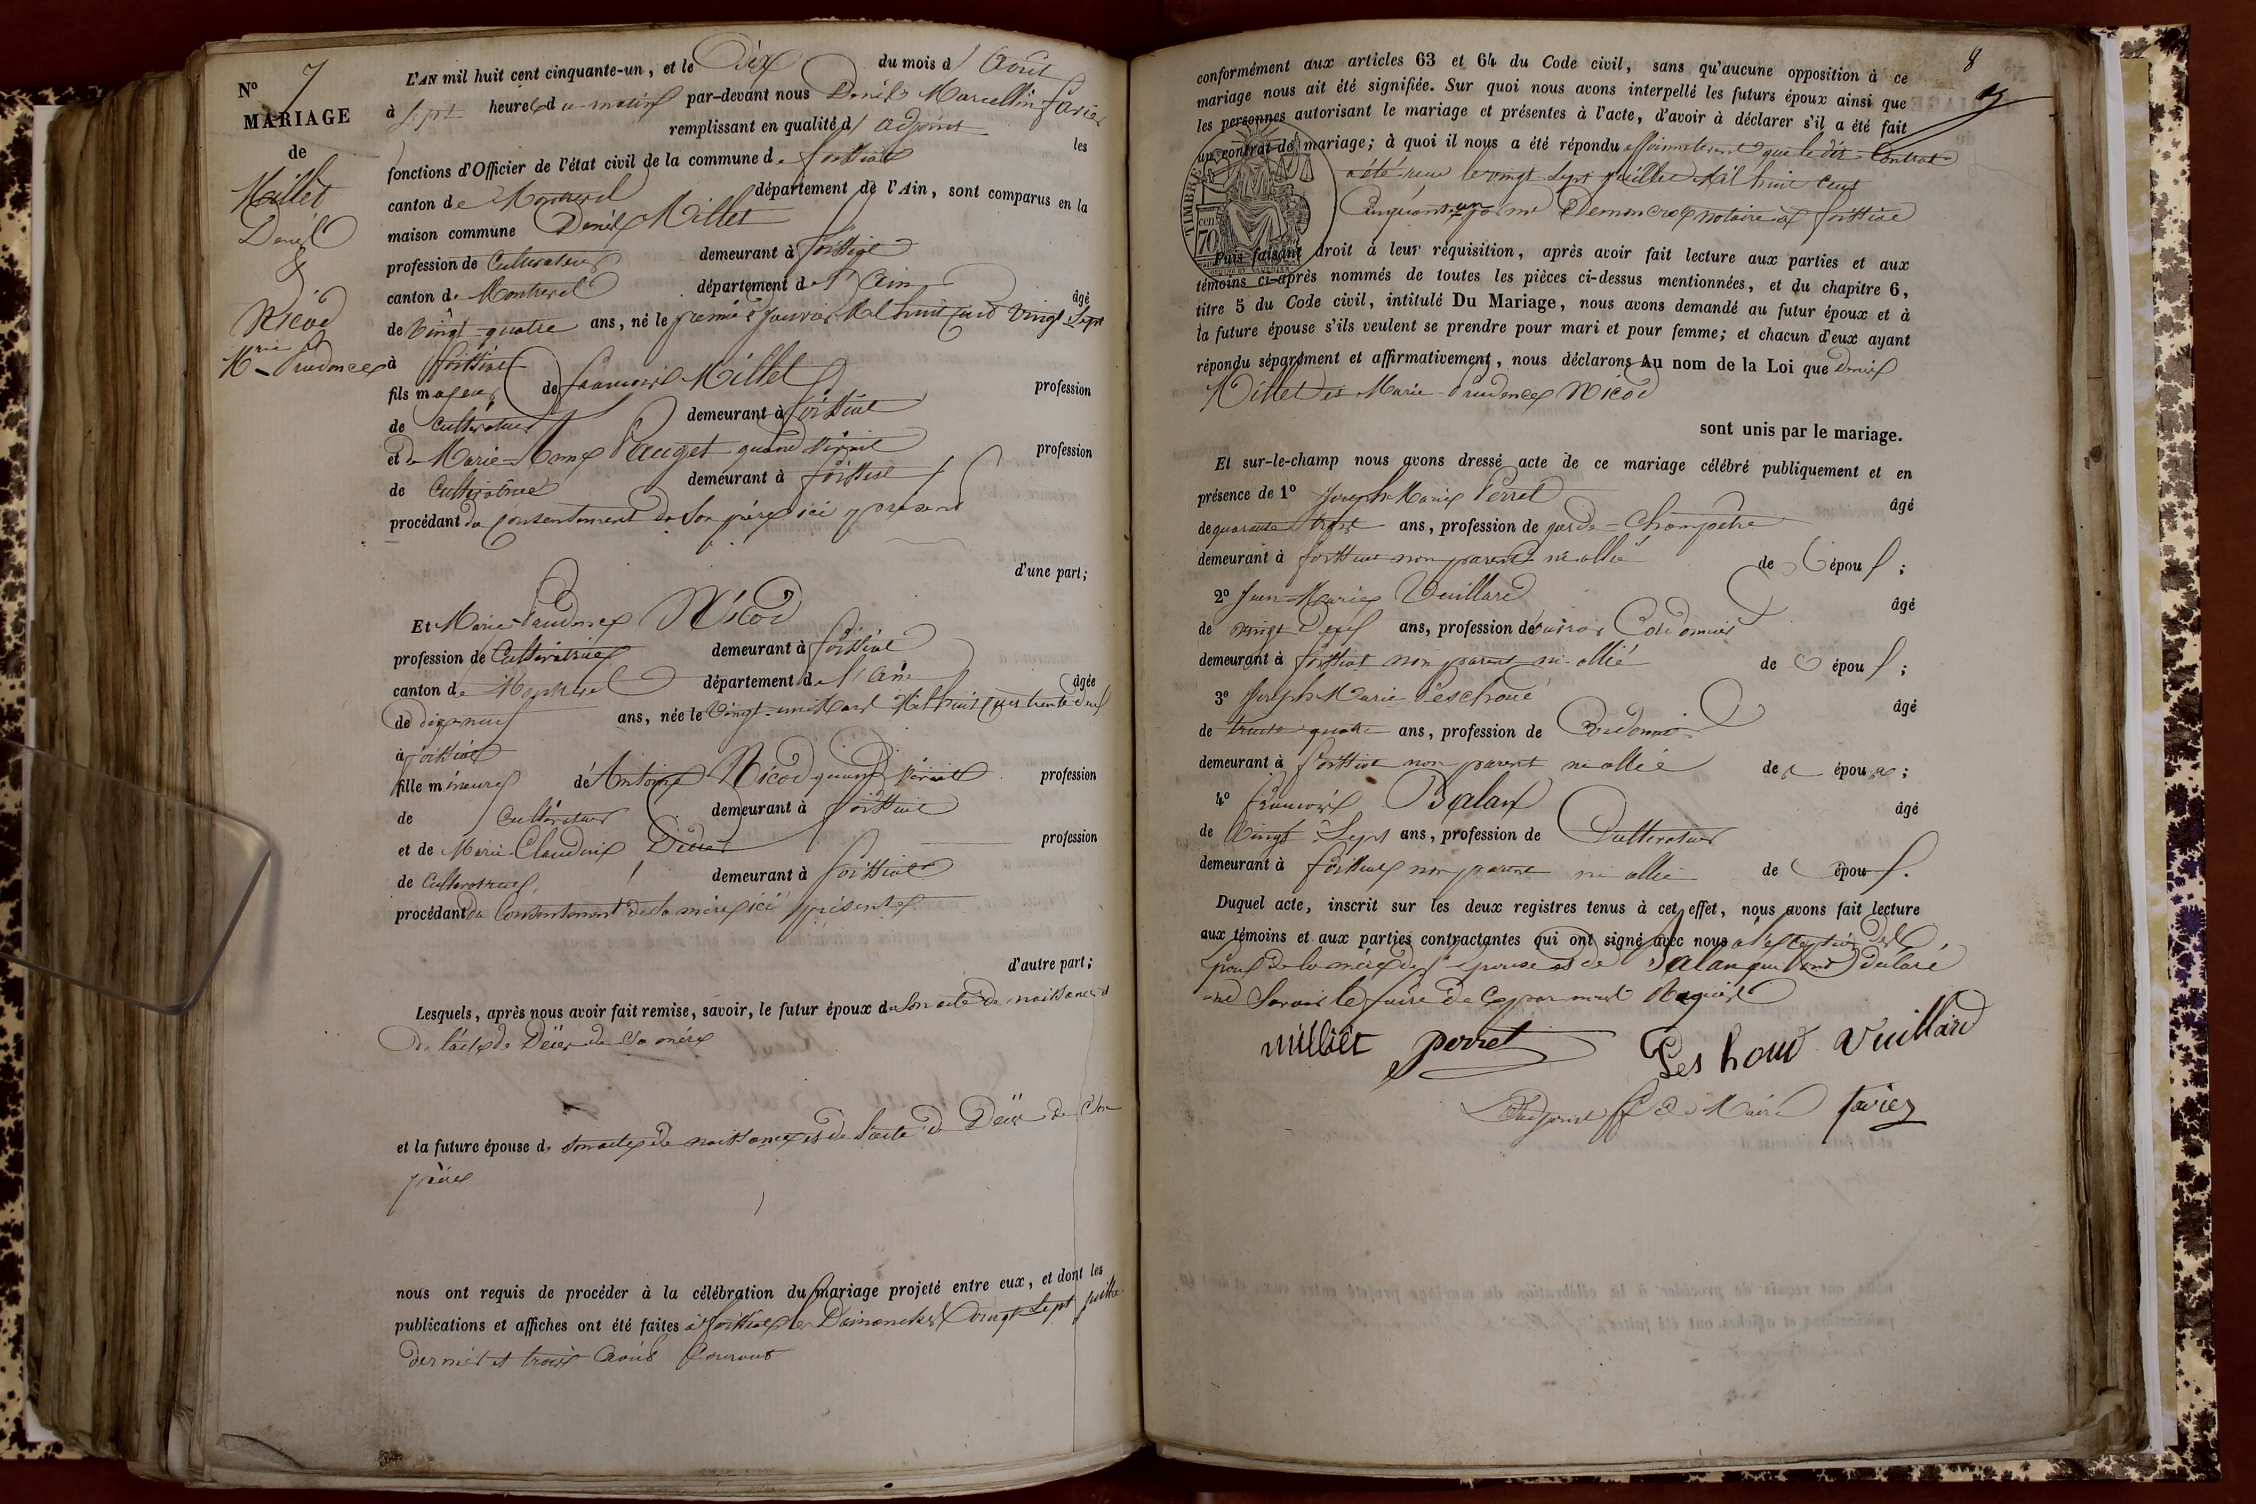 N° 7
MARIAGE
de
Millet
Denis
&
Nicod
Mrie Prudence
L'AN mil huit cent cinquante-un, et le Dix du mois d'Août
à sept heures du matin par-devant nous Denis Marcellin favier
remplissant en qualité d'adjoint les
fonctions d'Officier de l'état civil de la commune de foissiat
canton de Montrevel département de l'Ain, sont comparus en la
maison commune Denis Millet
profession de Cultivateur demeurant à foissiat
canton de Montrevel département de l'Ain âgé
de Vingt-quatre ans, né le premier Janvier Mil huit cent vingt Sept
à foissiat
fils majeur de francois Millet profession
de Cultivateur demeurant à foissiat
et de Marie-Anne Pauget quand vivait profession
de Cultivatrice demeurant à foissiat
procédant du Consentement de son père ici présent
d'une part;
Et Marie Prudence Nicod
profession de Cultivatrice demeurant à foissiat
canton de Montrevel département de l'Ain âgée
de dix-neuf ans, née le Vingt-un Mars Mil huit cent trente deux
à foissiat
fille mineure de Antoine Nicod quand vivait profession
de Cultivateur demeurant à foissiat
et de Marie Claudine profession
de Cultivatrice demeurant à foissiat
procédant du Consentement de sa mère ici présente
d'autre part;
Lesquels, après nous avoir fait remise, savoir, le futur époux de son acte de naissance et
de l'acte de Décès de sa mère
et la future épouse de son acte de naissance et de l'acte de Décès de son
père
nous ont requis de procéder à la célébration du mariage projeté entre eux, et dont les
publications et affiches ont été faites à foissiat les Dimanches vingt-sept juillet
dernier et trois Août Courant
8
conformément aux articles 63 et 64 du Code civil, sans qu'aucune opposition à ce
mariage nous ait été signifiée. Sur quoi nous avons interpellé les futurs époux ainsi que
les personnes autorisant le mariage et présentes à l'acte, d'avoir à déclarer s'il a été fait
un contrat de mariage; à quoi il nous a été répondu affirmativement que le dit Contrat
a été reçu le vingt sept juillet Mil huit Cent
Cinquante un par me notaire à foissiat
TIMBRE
70
Puis faisant droit à leur réquisition, après avoir fait lecture aux parties et aux
témoins ci-après nommés de toutes les pièces ci-dessus mentionnées, et du chapitre 6,
titre 5 du Code civil, intitulé Du Mariage, nous avons demandé au futur époux et à
la future épouse s'ils veulent se prendre pour mari et pour femme; et chacun d'eux ayant
répondu séparément et affirmativement, nous déclarons Au nom de la Loi que Denis
Millet et Marie-Prudence Nicod
sont unis par le mariage.
Et sur-le-champ nous avons dressé acte de ce mariage célébré publiquement et en
présence de 1° Joseph-Marie Perret âgé
de quarante trois ans, profession de garde-Champêtre
demeurant à foissiat non parent ni allié de époux;
2° Jean-Marie Vuillard âgé
de vingt Deux ans, profession de Cordonnier
demeurant à foissiat non parent ni allié de époux;
3° Joseph Marie Peschoud âgé
de trente quatre ans, profession de Cordonnier
demeurant à foissiat non parent ni allié de époux;
4° francois Balan âgé
de Vingt Sept ans, profession de Cultivateur
demeurant à foissiat non parent ni allié de époux.
Duquel acte, inscrit sur les deux registres tenus à cet effet, nous avons fait lecture
aux témoins et aux parties contractantes qui ont signé avec nous à l'exception des
époux de la mère de l'épouse et de Balan qui ont déclaré
ne savoir le faire de ce par nous Requis
milliet perret Peshoud Vuillard
L'adjoint ff de Maire favier